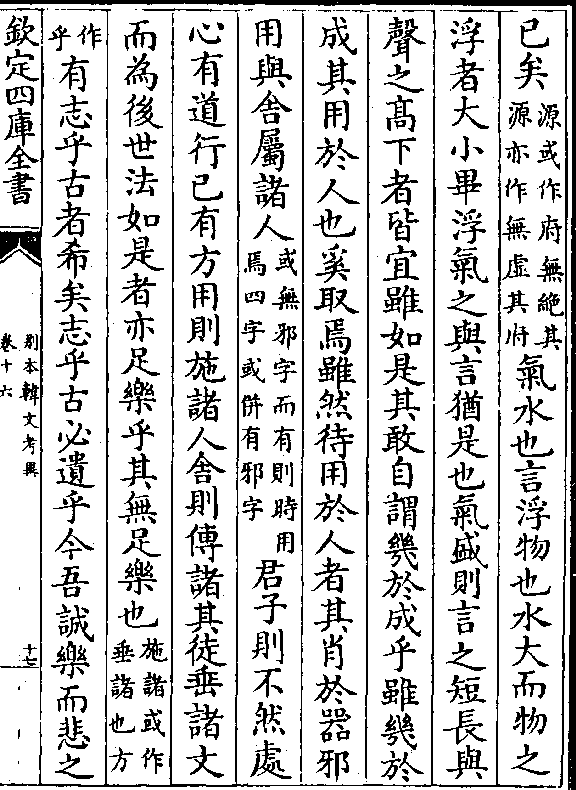 已矣源或作府無絶其源亦作無虛其府氣水也言浮物也水大而物之
浮者大小畢浮氣之與言猶是也氣盛則言之短長與
聲之髙下者皆宜雖如是其敢自謂幾於成乎雖幾於
成其用於人也奚取焉雖然待用於人者其肖於器邪
用與舍屬諸人或無邪字而有則時用焉四字或倂有邪字君子則不然處
心有道行已有方用則施諸人舍則傳諸其徒垂諸文
而為後世法如是者亦足樂乎其無足樂也施諸或作垂諸也方
作乎有志乎古者希矣志乎古必遺乎今吾誠樂而悲之
欽定四庫全書
别本韓文考異
卷十六
十七